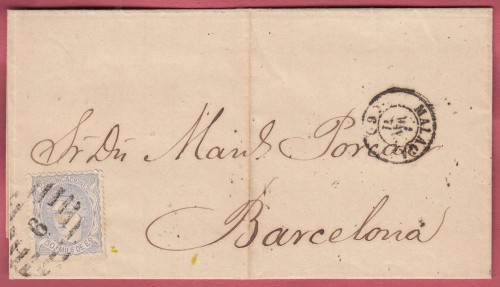 MALAGA
Sr. Dn. Manl. Porcar
Barcelona
50 MILS DE E